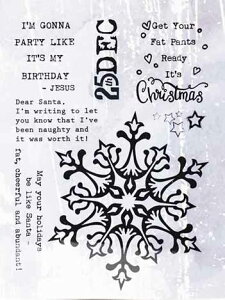 I'M GONNA
PARTY LIKE
IT'S MY
BIRTHDAY
- JESUS
25TH DEC
Get Your
Fat Pants
Ready
It's
Christmas
Dear Santa,
I'm writing to let
you know that I've
been naughty and
it was worth it!
May your holidays
be like Santa -
fat, cheerful and abundant!